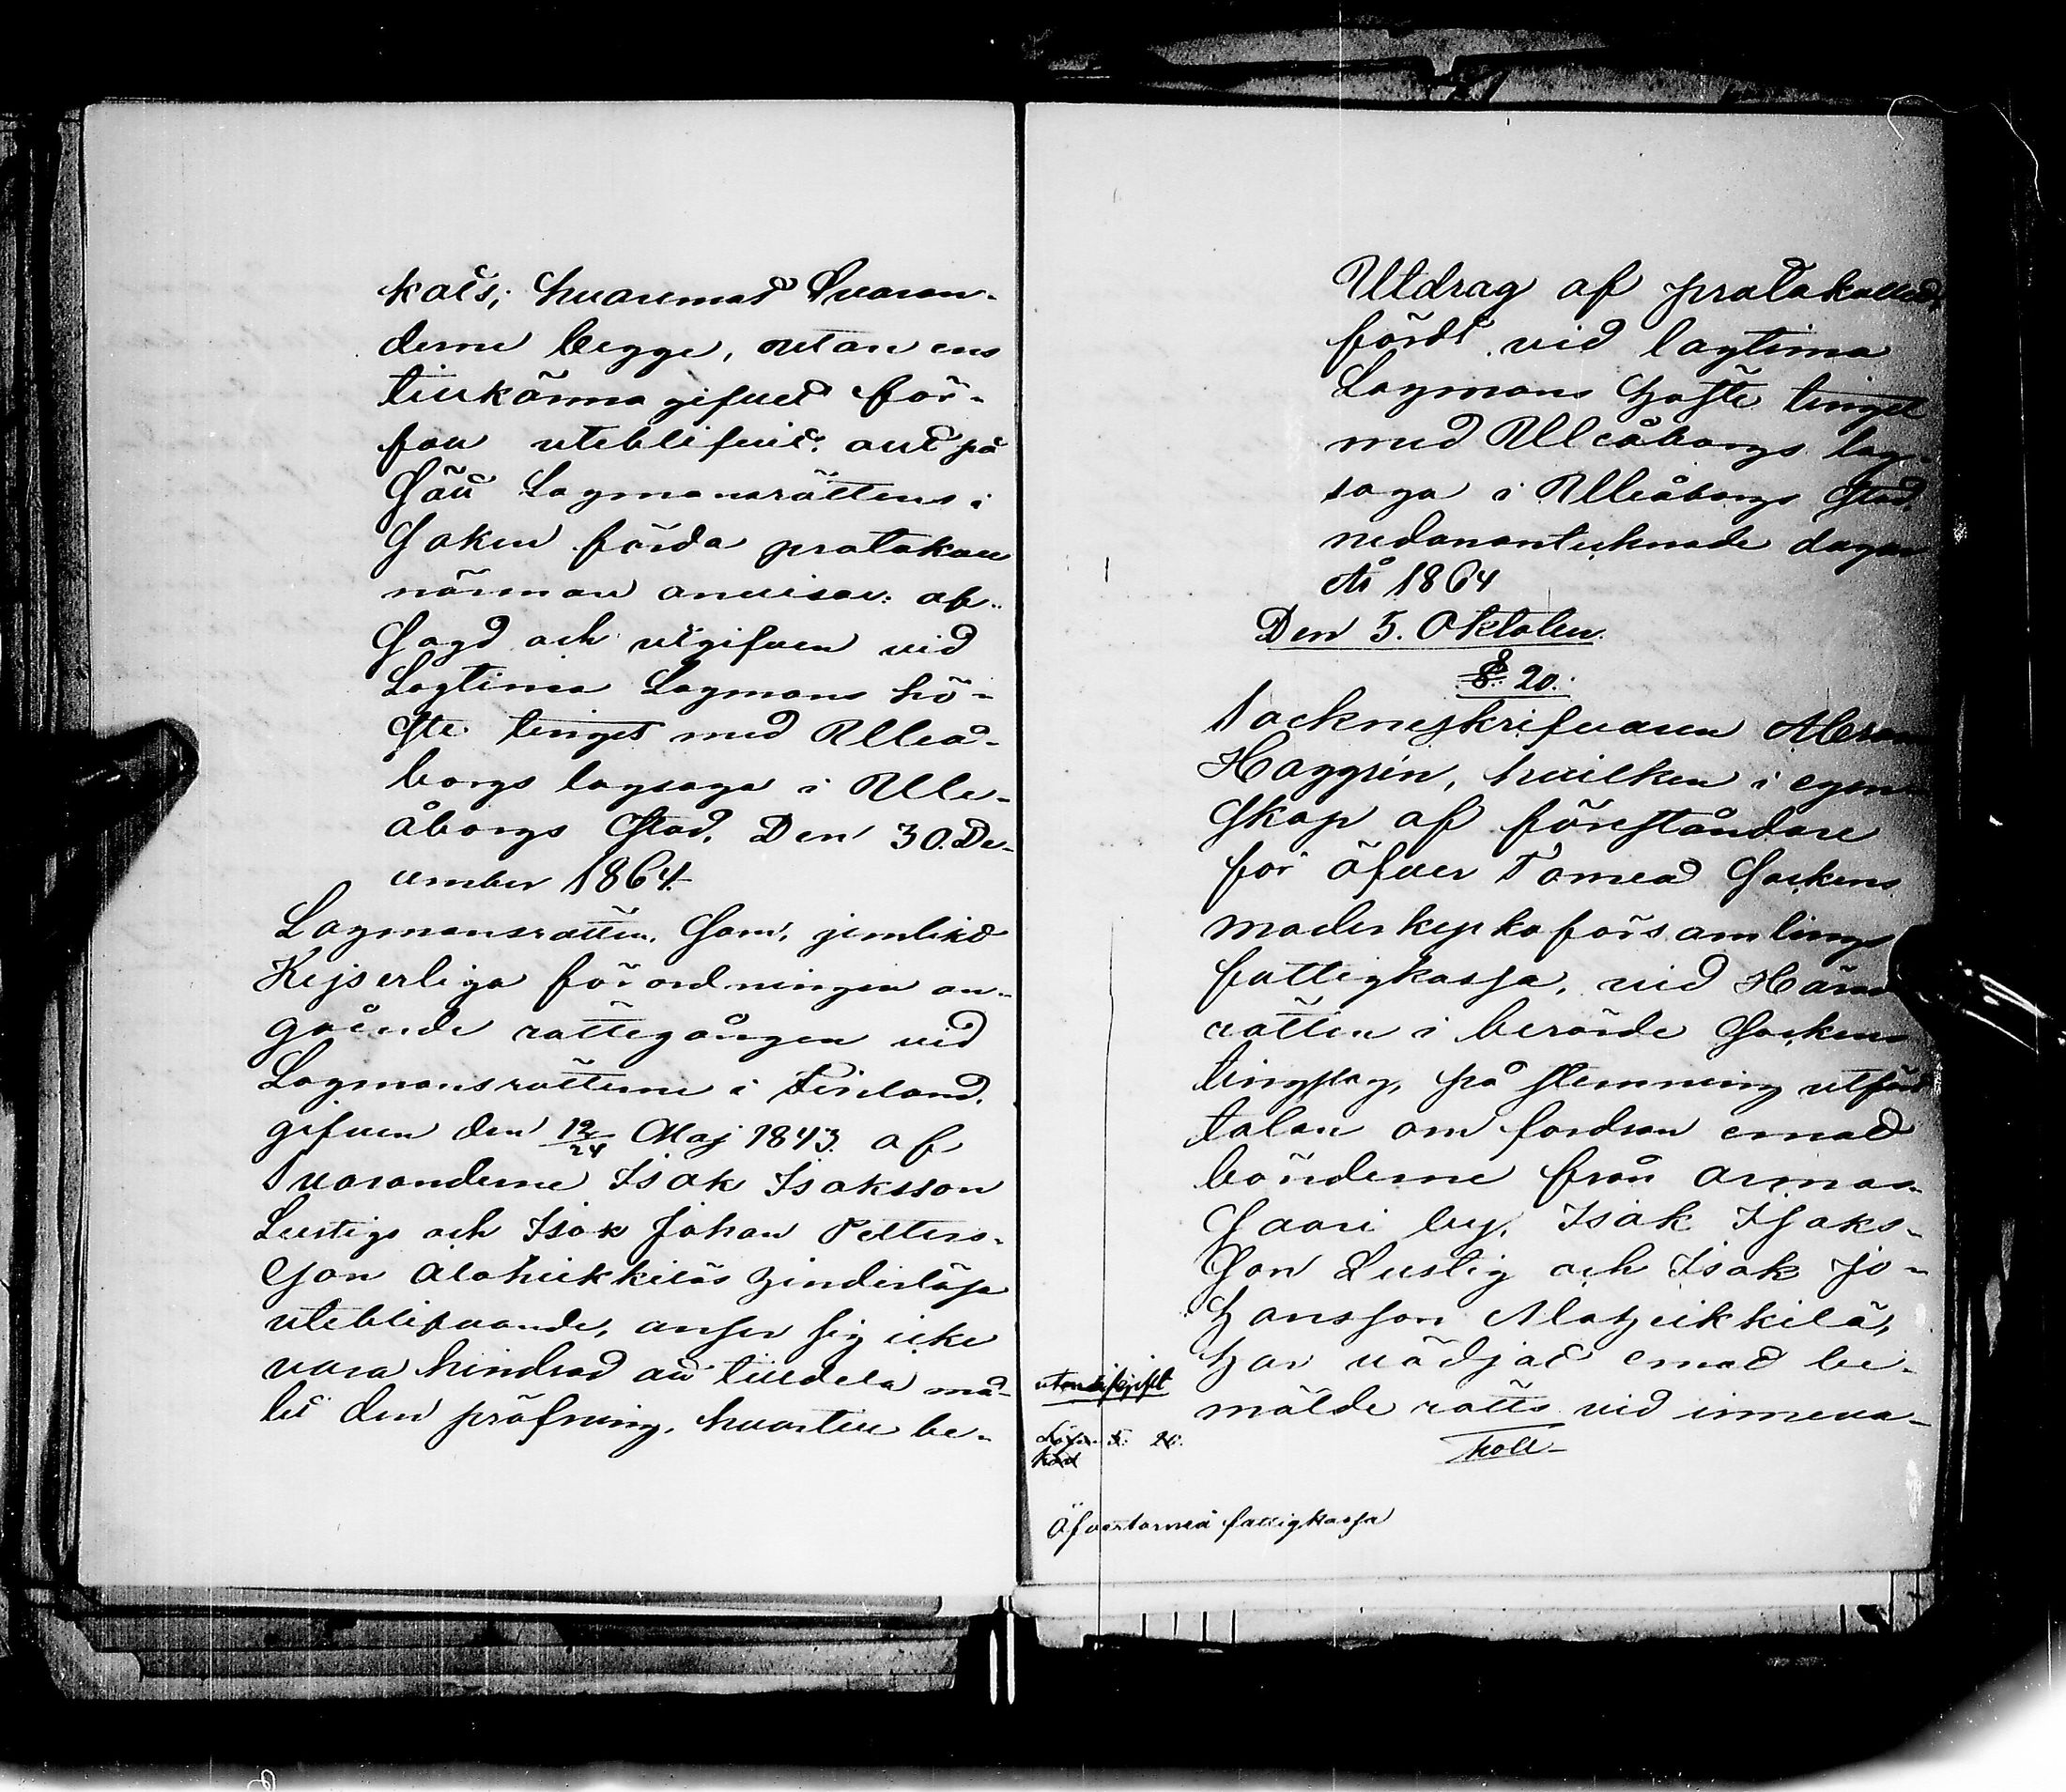 kats; hvaremot Svaran-
derne begge, utan ens
tillkännagifvet för-
fall uteblifvit: allt på
sätt Lagmansrättens i
saken förda protokoll
närmare utvisar: af-
sagd och utgifven vid
Lagtima Lagmans hö-
ste tinget med Uleå-
borgs lagsaga i Ule-
åborgs stad, Den 30. De-
cember 1864.
Lagmansrätten, som, jemlikt
Kejserliga förordningen an-
gående rättegången vid
Lagmansrätterne i Finland,
gifven den 12/24 Maj 1843 af
Svaranderne Isak Isaksson
Lustigs och Isak Johan Petters-
son Alahiekkiläs hinderlösa
uteblifvande, anser sig icke
vara hindrad att tilldela må-
let den pröfning, hvartill be-
Utdrag af protokollet,
fördt vid lagtima
Lagmans höste tinget
med Uleåborgs lag-
saga i Uleåborgs stad
nedanantecknade dagar
år 1864
Den 5. Oktober.
§ 20.
Sockneskrifvaren Abram
Haggrén, hvilken i egen-
skap af föreståndare
för Öfver Torneå Sockens
moderkyrkoförsamlings
fattigkassa, vid Härads
rätten i berörde Sockens
tingslag, på stemning utfört
talan om fordran emot
bönderne från Armas-
saari by, Isak Isaks-
son Lustig och Isak Jo-
hansson Alahiekkilä,
har vädjat emot be-
mälde rätts vid inneva-
holl-
utanskrift
Lösen 26.
Öfvertorneå fattigkassa